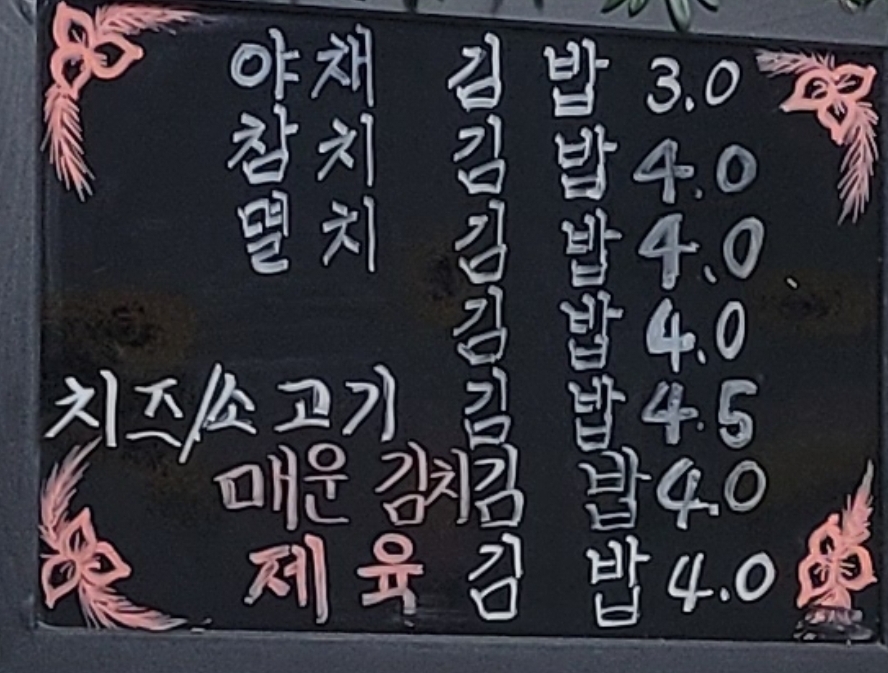 야채 김 밥 3.0
참 치 김 밥 4.0
멸 치 김 밥 4.0
김 밥 4.0
치즈/소고기 김 밥 4.5
매운 김치김 밥 4.0
제 육 김 밥 4.0